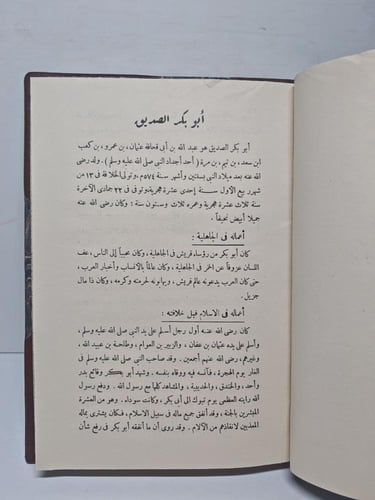 أبو بكر الصديق
أبو بكر الصديق هو عبد الله بن أبى قحافة عثمان، بن عمرو، بن كعب
ابن سعد، بن تيم، بن مرة ( أحد أجداد النبى صلى الله عليه وسلم ). ولد رضى
الله عنه بعد ميلاد النبى بسنتين وأشهر سنة ٥٧٤م، وتولى الخلافة فى ١٣ من
شهر ربيع الأول سنة إحدى عشرة هجرية، وتوفى فى ٢٢ جمادى الآخرة
سنة ثلاث عشرة هجرية وعمره ثلاث وستون سنة ؛ وكان رضى الله عنه
جميلا أبيض نحيفاً .
أعماله فى الجاهلية :
كان أبو بكر من رؤساء قريش فى الجاهلية، وكان محبباً إلى الناس، عف
اللسان عزوفاً عن الخمر فى الجاهلية، وكان عالماً بالأنساب وأخبار العرب،
حتى كان العرب يدعونه عالم قريش، ويهابونه لحرمته وكرمه، وكان ذا مال
جزيل .
أعماله فى الاسلام قبل خلافته :
كان رضى الله عنه أول رجل أسلم على يد النبى صلى الله عليه وسلم،
وأسلم على يده عثمان بن عفان، والزبير بن العوام، وطلحة بن عبيد الله،
وغيرهم، رضى الله عنهم أجمعين . وقد صاحب النبى صلى الله عليه وسلم فى
الغار يوم الهجرة، فآنسه فيه ووقاه بنفسه . وشهد أبو بكر وقائع بدر
وأحد، والخندق، والحديبية، والمشاهد كلها مع رسول الله . ودفع رسول
الله رايته العظمى يوم تبوك الى أبى بكر، وكانت سوداء . وهو من العشرة
المبشرين بالجنة، وقد أنفق جميع ماله فى سبيل الاسلام، فكان يشترى بماله
المعذبين لانقاذهم من الآلام . وقد روى أن ما أنفقه أبو بكر فى رفع شأن